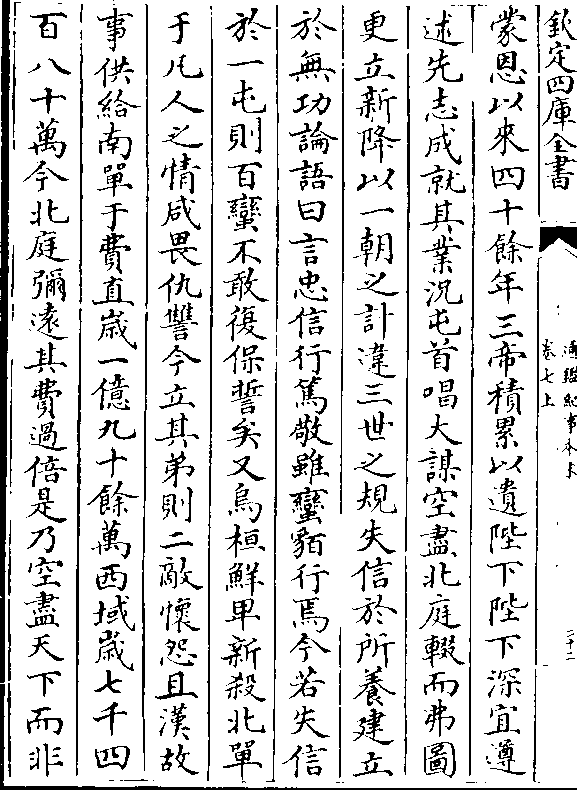 欽定四庫全書
通鑑紀事本末
卷七上
二十二
蒙恩以來四十餘年三帝積累以遺陛下陛下深宜遵
述先志成就其業況屯首唱大謀空盡北庭輟而弗圖
更立新降以一朝之計違三世之規失信於所養建立
於無功論語曰言忠信行篤敬雖蠻貊行焉今若失信
於一屯則百蠻不敢復保誓矣又烏桓鮮卑新殺北單
于凡人之情咸畏仇讐今立其弟則二敵懷怨且漢故
事供給南單于費直歳一億九十餘萬西域歳七千四
百八十萬今北庭彌遠其費過倍是乃空盡天下而非